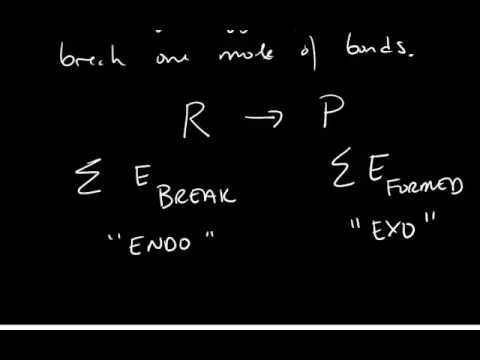 break one mole of bonds.
R → P
Σ E BREAK Σ E FORMED
"ENDO" "EXO"